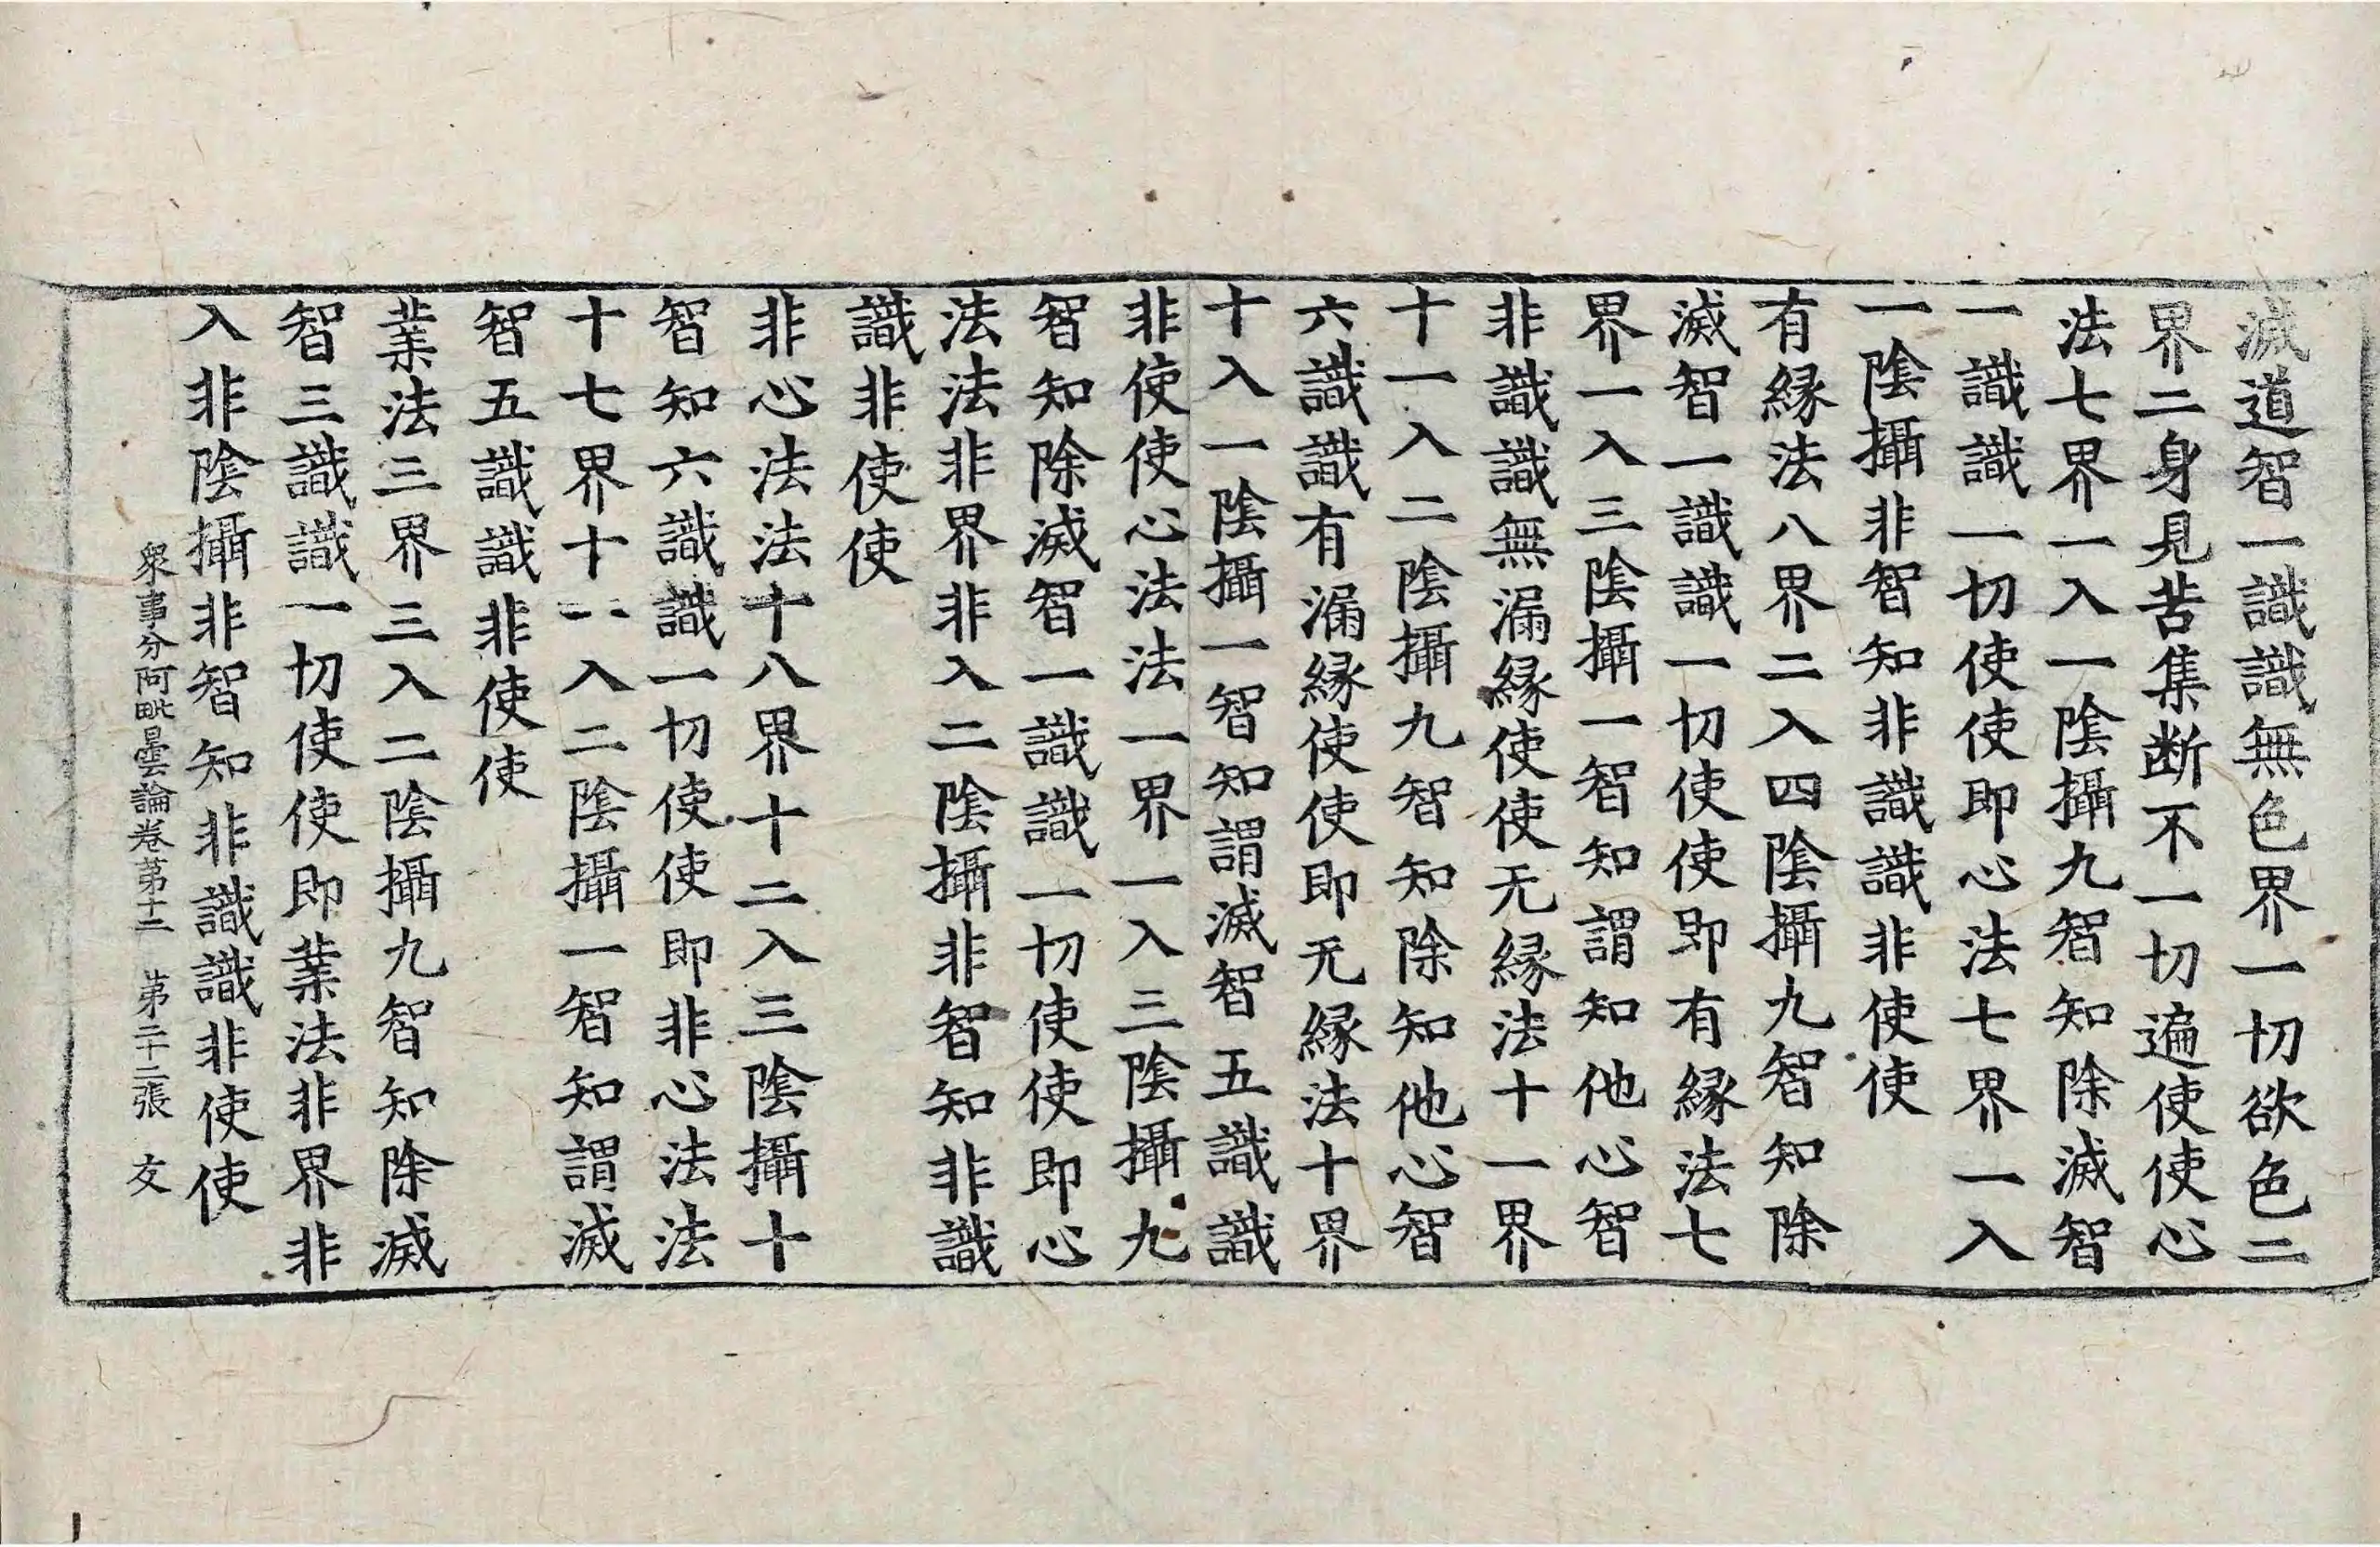 滅道智一識識無色界一切欲色二
界二身見苦集断不一切遍使使心
法七界一入一陰攝九智知除滅智
一識識一切使使即心法七界一入
一陰攝非智知非識識非使使
有縁法八界二入四陰攝九智知除
滅智一識識一切使使即有縁法七
界一入三陰攝一智知謂知他心智
非識識無漏縁使使无縁法十一界
十一入二陰攝九智知除知他心智
六識識有漏縁使使即无縁法十界
十入一陰攝一智知謂滅智五識識
非使使心法法一界一入三陰攝九
智知除滅智一識識一切使使即心
法法非界非入二陰攝非智知非識
識非使使
非心法法十八界十二入三陰攝十
智知六識識一切使使即非心法法
十七界十一入二陰攝一智知謂滅
智五識識非使使
業法三界三入二陰攝九智知除滅
智三識識一切使使即業法非界非
入非陰攝非智知非識識非使使
衆事分阿毗曇論卷苐十二 苐二十二張 友